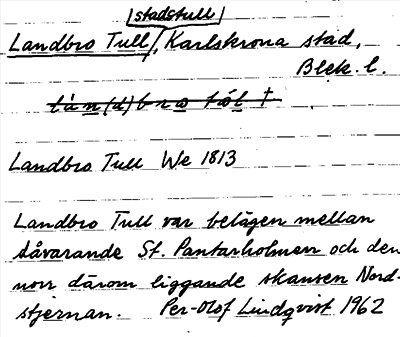 stadstull
Landbro Tull, Karlskrona stad,
Blek. l.
lán(d)bro tól †
Landbro Tull We 1813
Landbro Tull var belägen mellan
dåvarande St. Pantarholmen och den
norr därom liggande skansen Nord-
stjernan. Per-Olof Lindqvist 1962